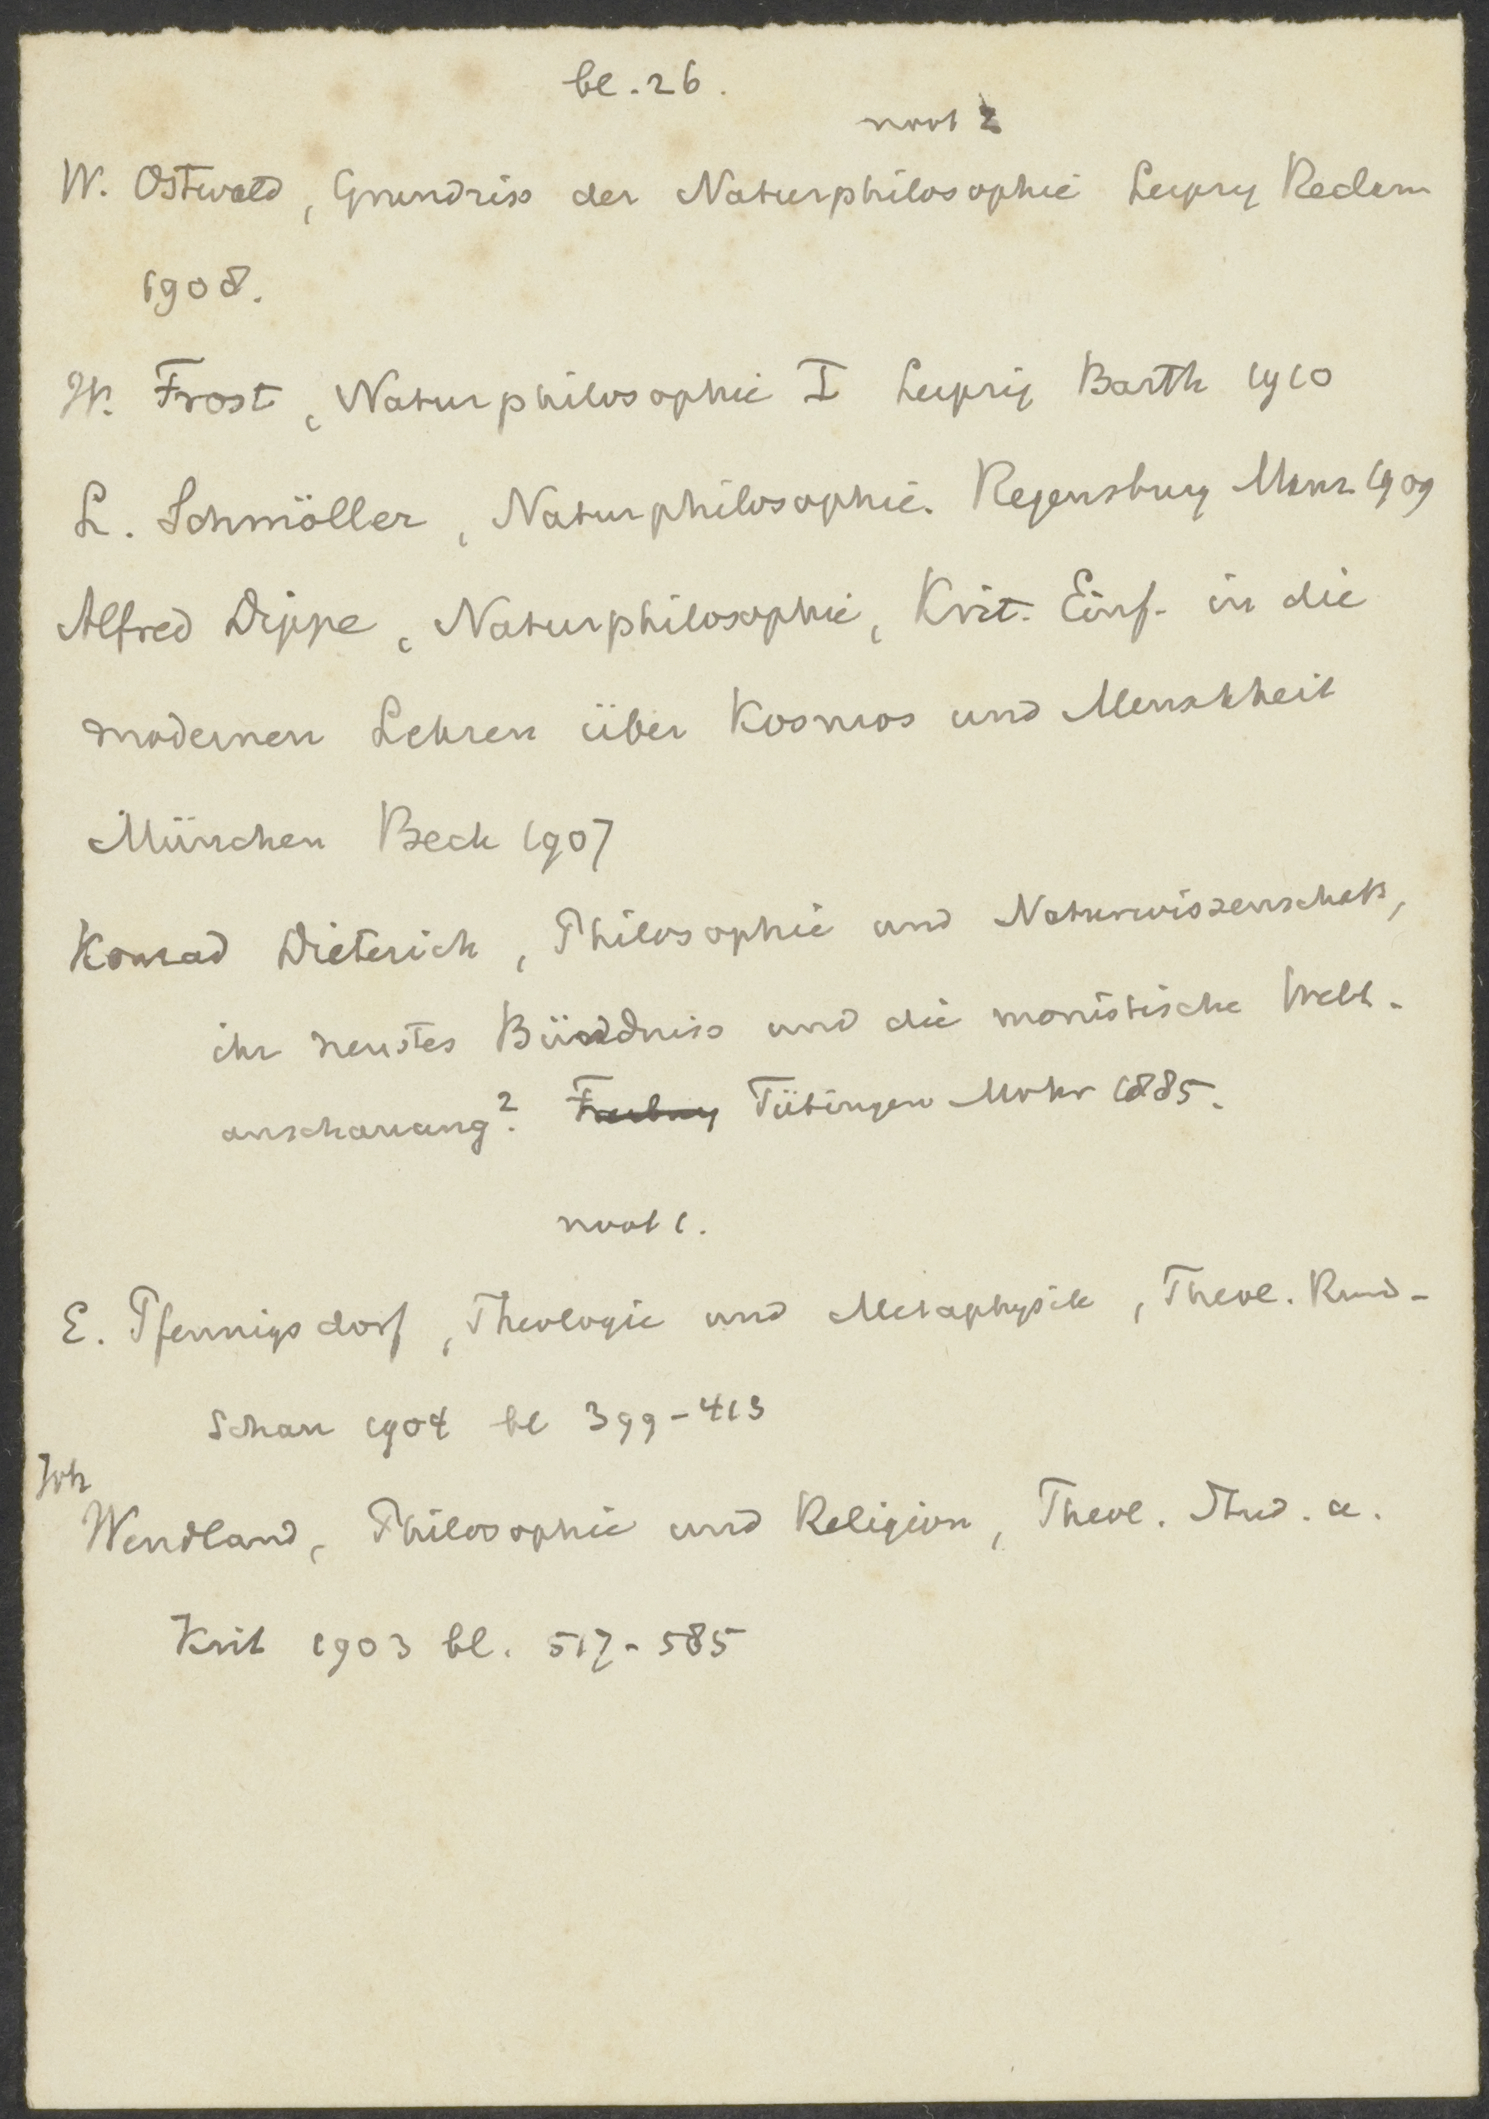 bl. 26.
noot 2
W. Ostwald, Grundriss der Naturphilosophie Leipzig Reclam
1908.
W. Frost, Naturphilosophie I Leipzig Barth 1910
L. Schmöller, Naturphilosophie. Regensburg Manz 1909
Alfred Dippe, Naturphilosophie, Krit. Einf. in die
modernen Lehren über Kosmos und Menschheit
München Beck 1907
Konrad Dieterich, Philosophie und Naturwissenschaft,
ihr neustes Bündniss und die monistische Welt-
anschauung² Freiburg Tübingen Mohr 1885.
noot 1.
E. Pfennigsdorf, Theologie und Metaphysik, Theol. Rund-
schau 1904 bl 399-413
Joh
Wendland, Philosophie und Religion, Theol. Stud. u.
Krit 1903 bl. 517-585